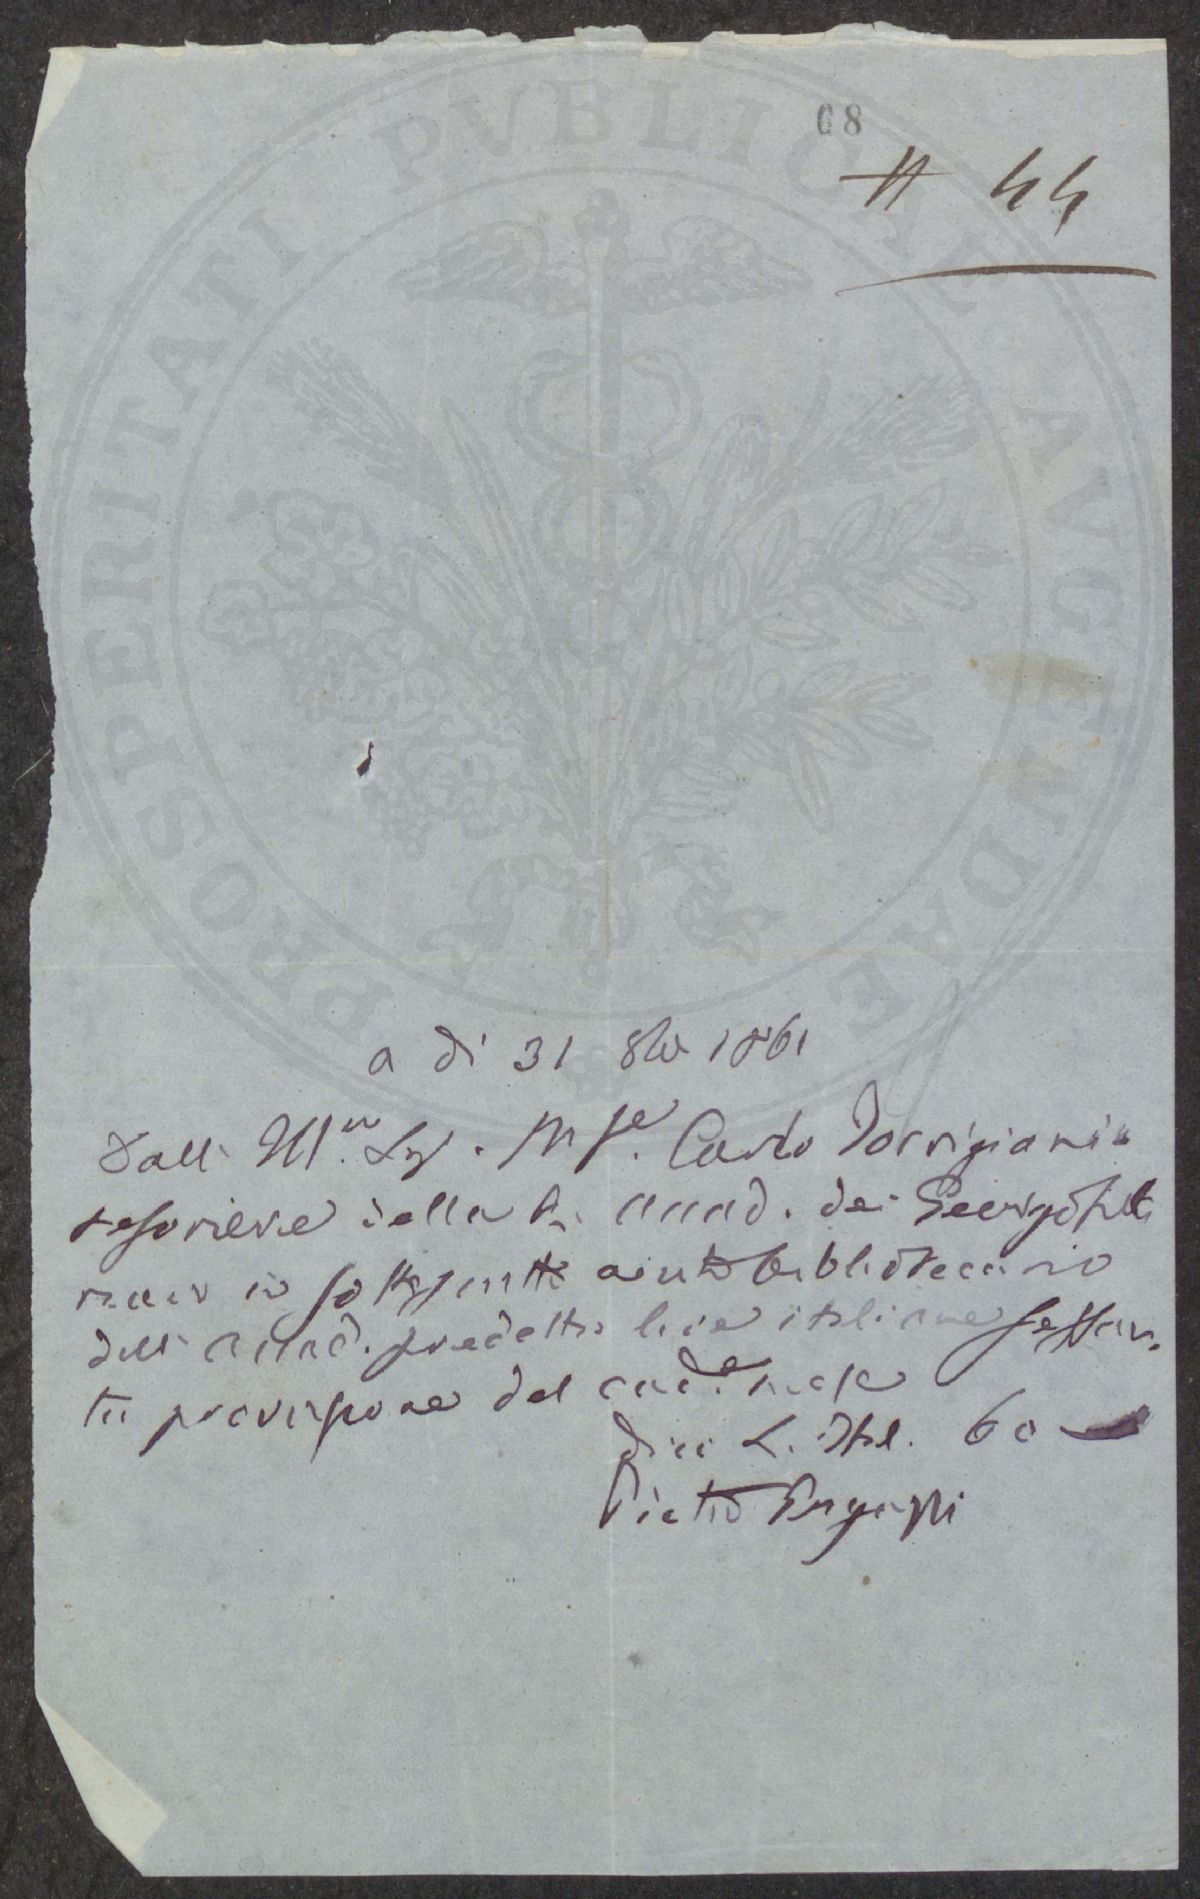 68
# 44
PROSPERITATI PVBLICAE AVGENDAE
a dì 31 8bre 1861
Dall' Ill.mo Sig. M.se Carlo Torrigiani
tesoriere della R. Accad. dei Georgofili
io sottoscritto aiuto bibliotecario
dell' Accad. predetta lire italiane sessan-
ta provvisione del cad.e mese
dico L. Ital. 60
Pietro